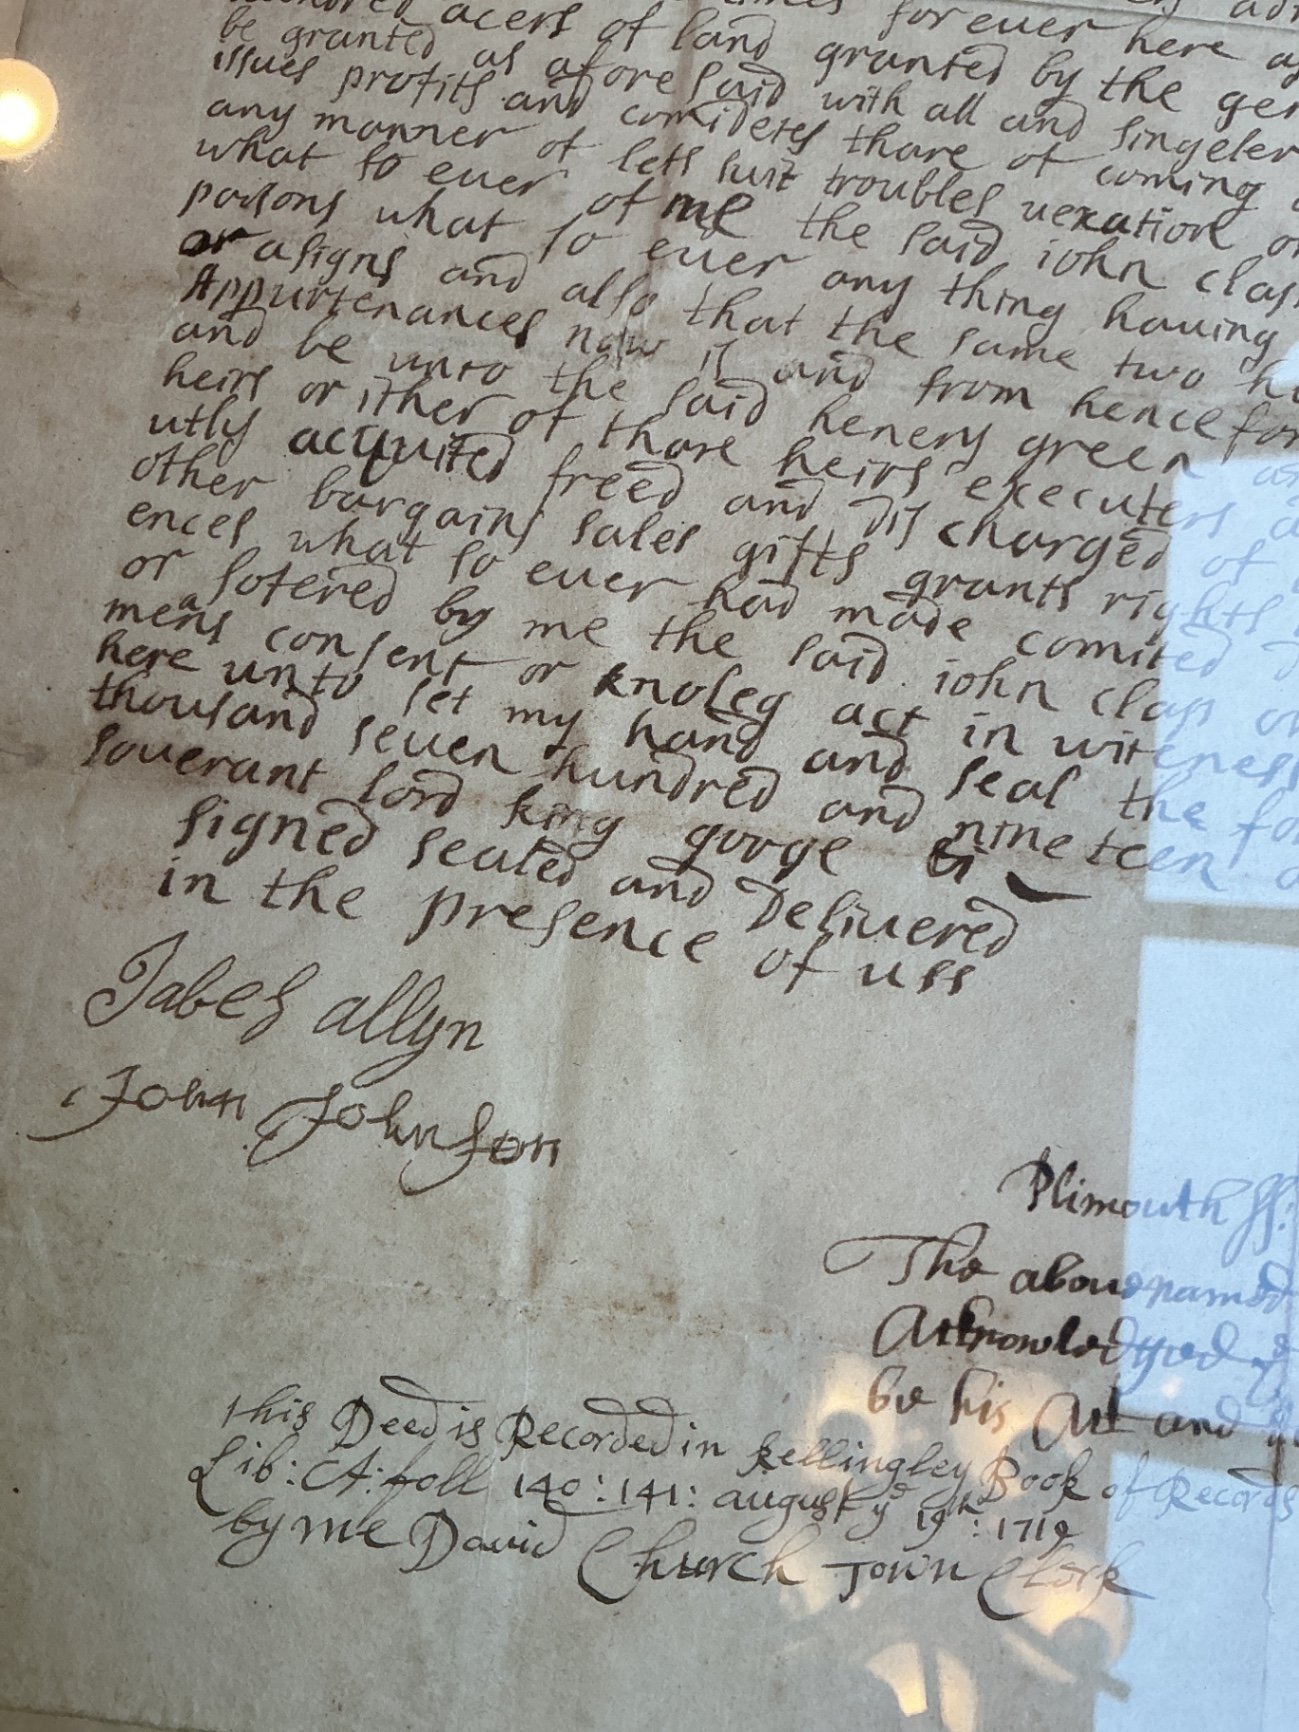 acers of land granted by the
be granted as afore said with all and singeler
issues profits and comidetes thare of coming
any manner of lets suit troubles vexation
what so euer of me the said iohn
parsons what so euer any thing hauing
or asigns and allso that the same two
Appurtenances now is and from hence
and be unto the said henery green
heirs or ither of thare heirs executers
utly acquited freed and discharged of
other bargains sales gifts grants rights
ences what so euer had made comited
or sofered by me the said iohn
means consent or knoleg act in witeness
here unto set my hand and seal the
thousand seuen hundred and nineteen
souerant lord king gorge
signed sealed and Deliuered
in the presence of uss
Jabes allyn
John Johnson
Plimouth ss:
The abouenamed
Acknowledged
be his Act and
this Deed is Recorded in Kellingley Book of Records
Lib: A: foll 140: 141: august ye 19th: 1719
by me David Church Town Clerk